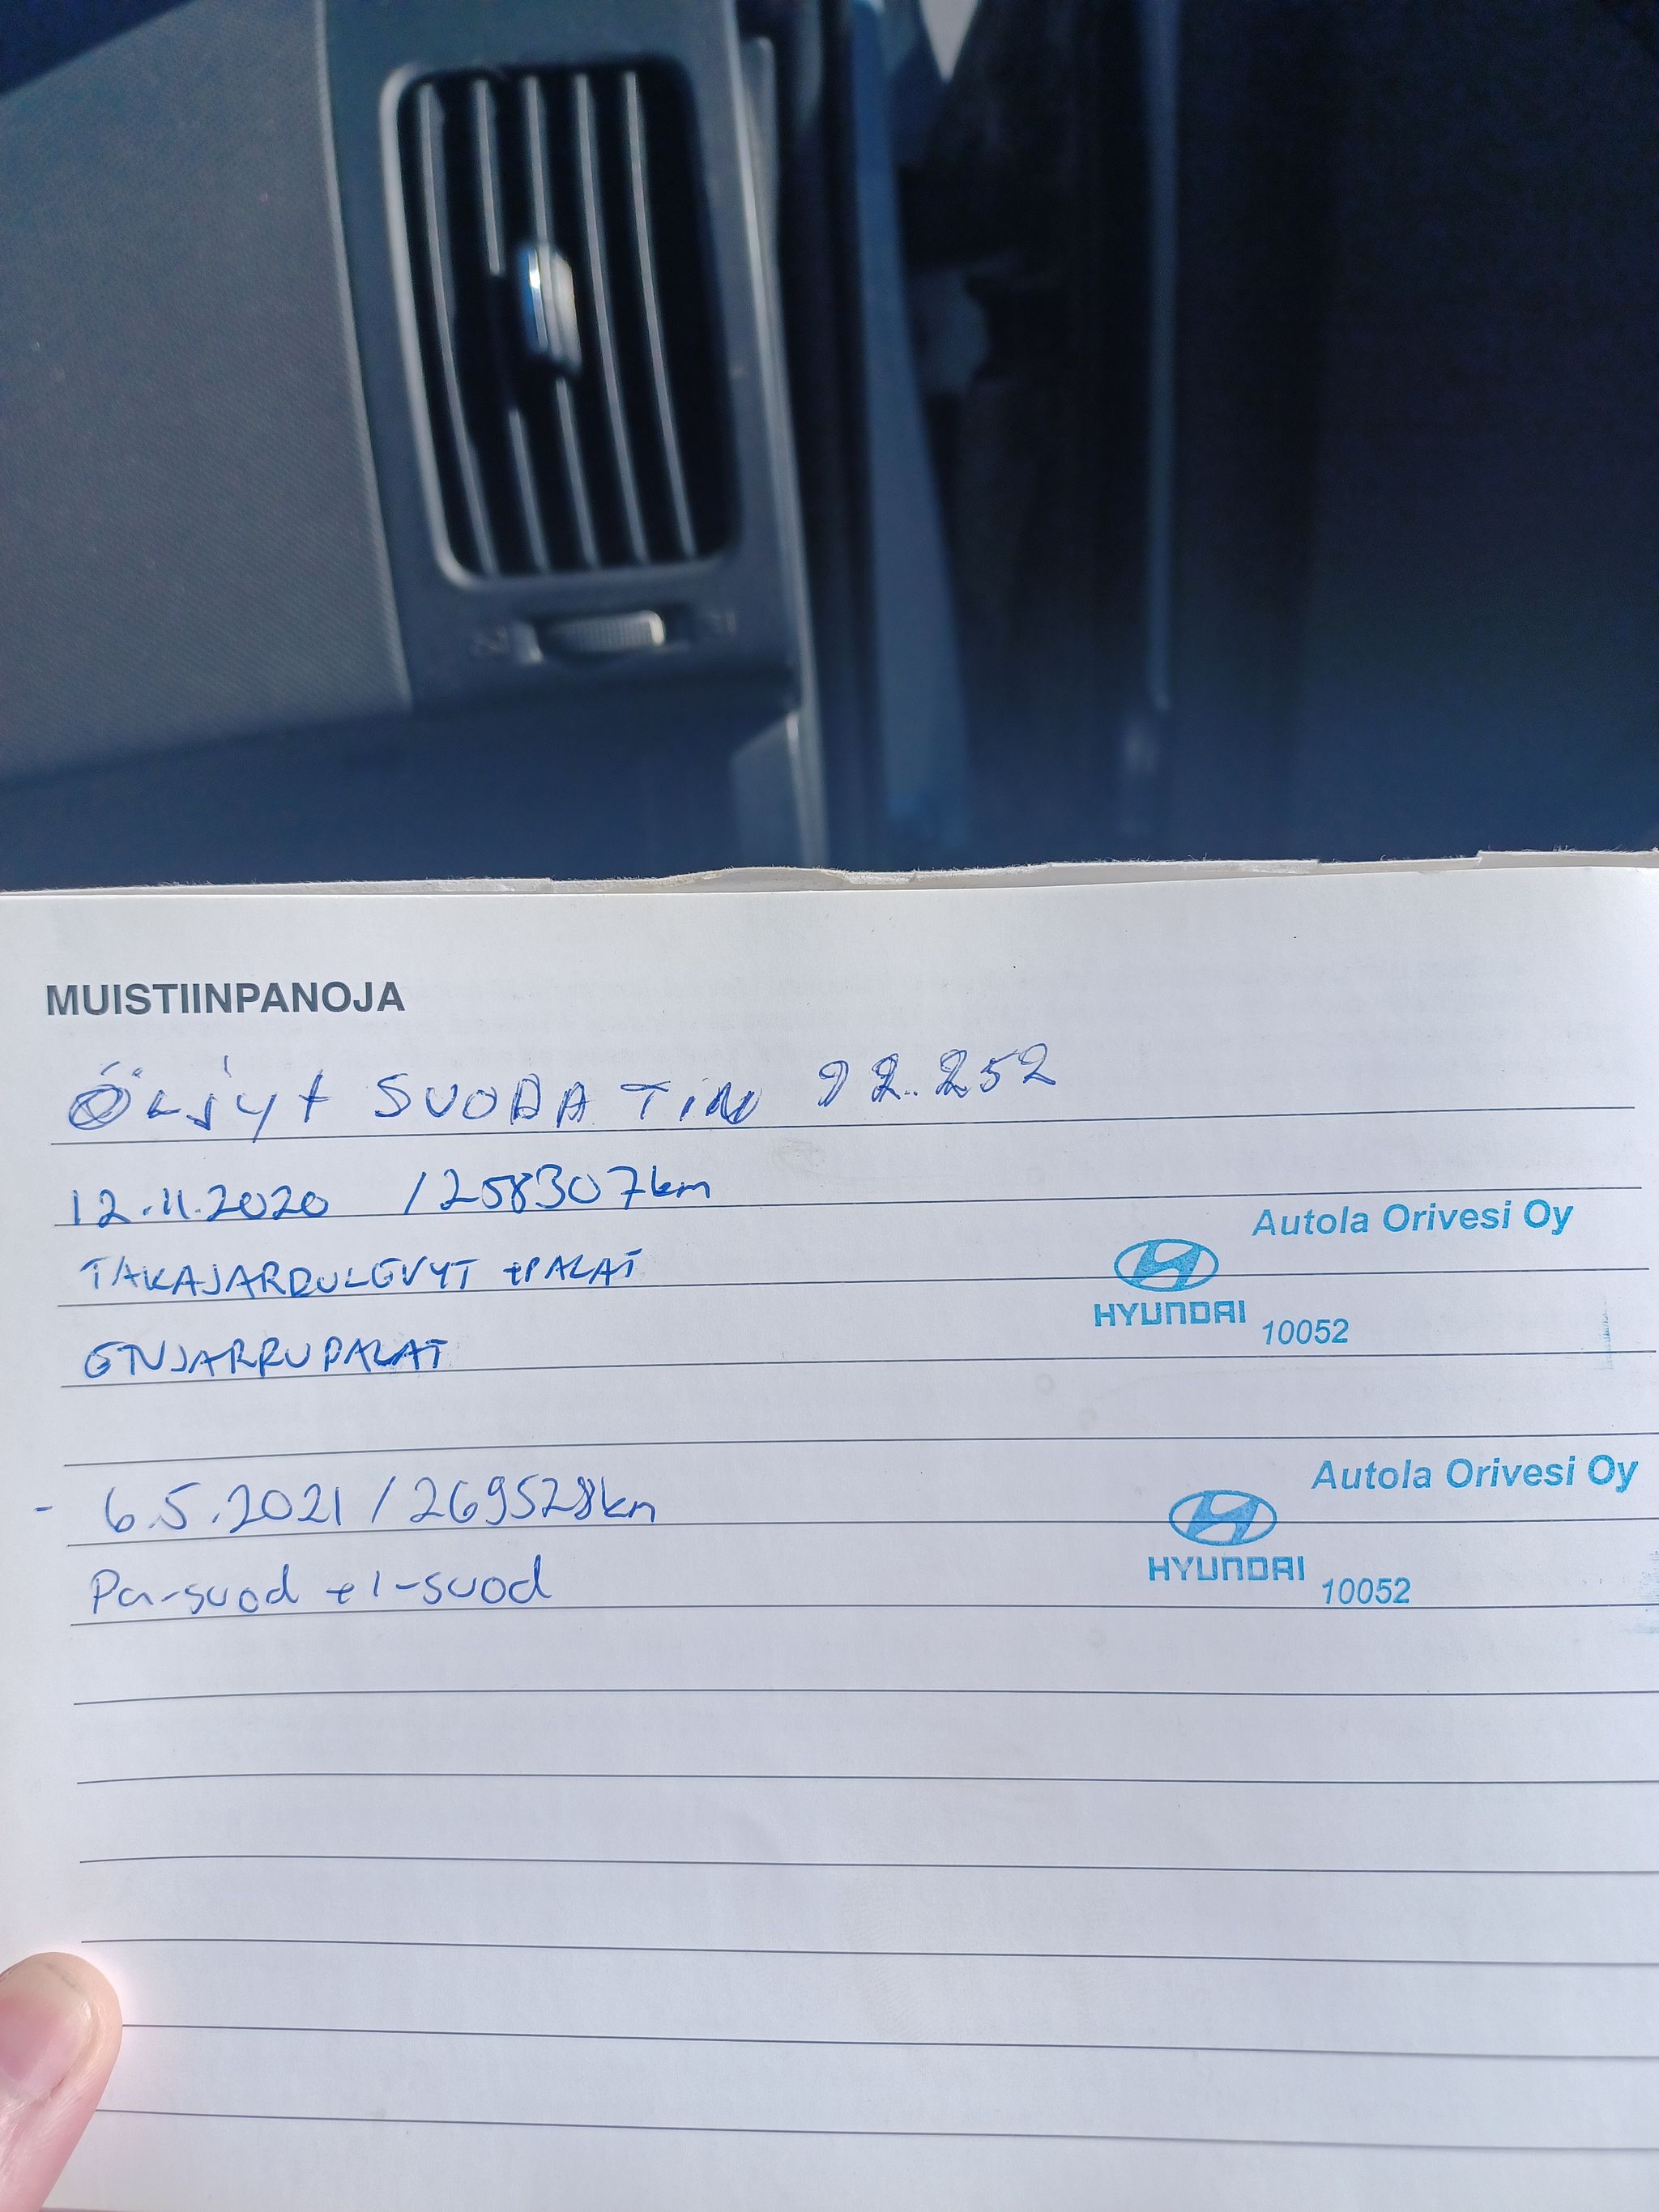 MUISTIINPANOJA
ÖLJYt SUODATIN 92.252
12.11.2020 /258307km
Autola Orivesi Oy
TAKAJARRULEVYT +PALAT
HYUNDAI 10052
ETUJARRUPALAT
- 6.5.2021 / 269528km
Autola Orivesi Oy
Pa-suod + i-suod
HYUNDAI 10052